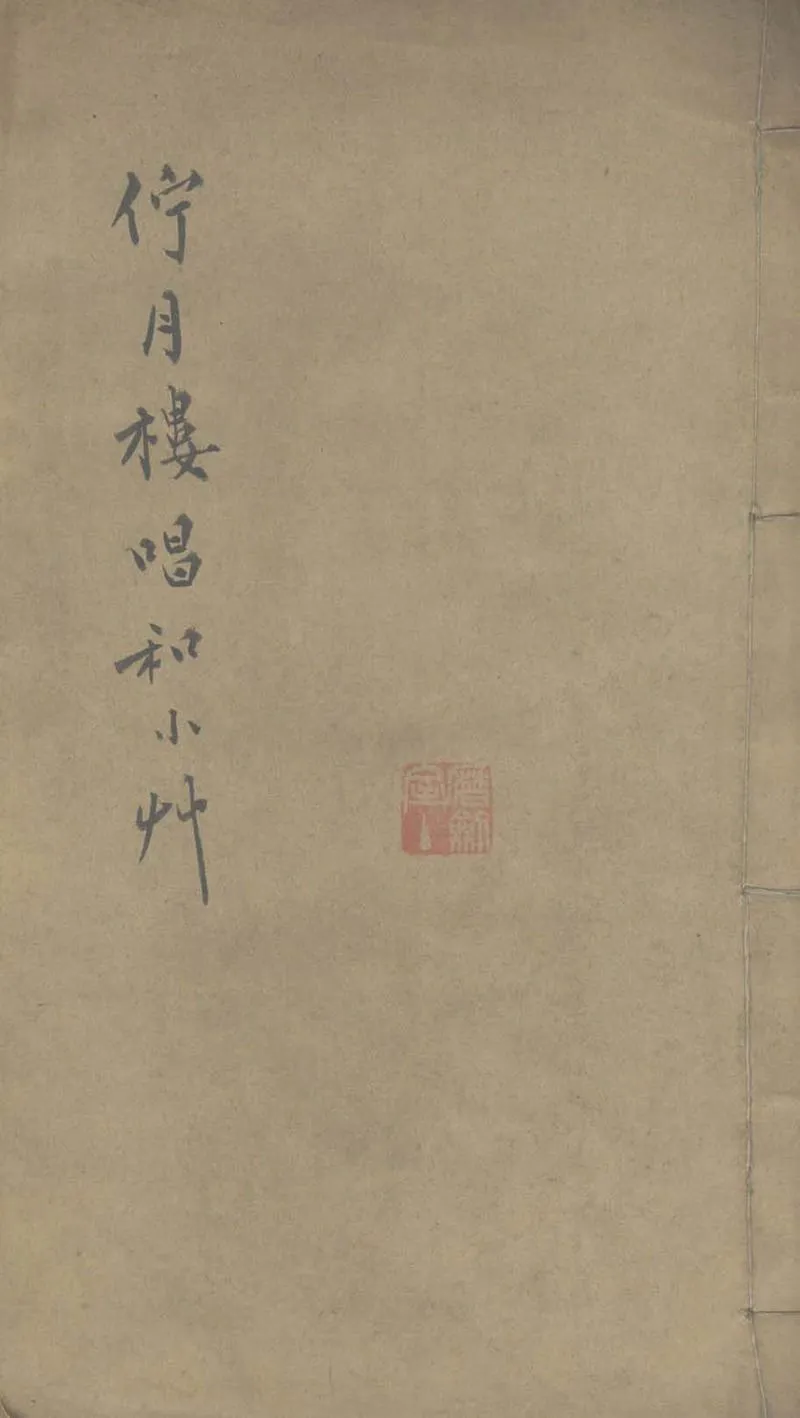 佇月樓唱和小艸